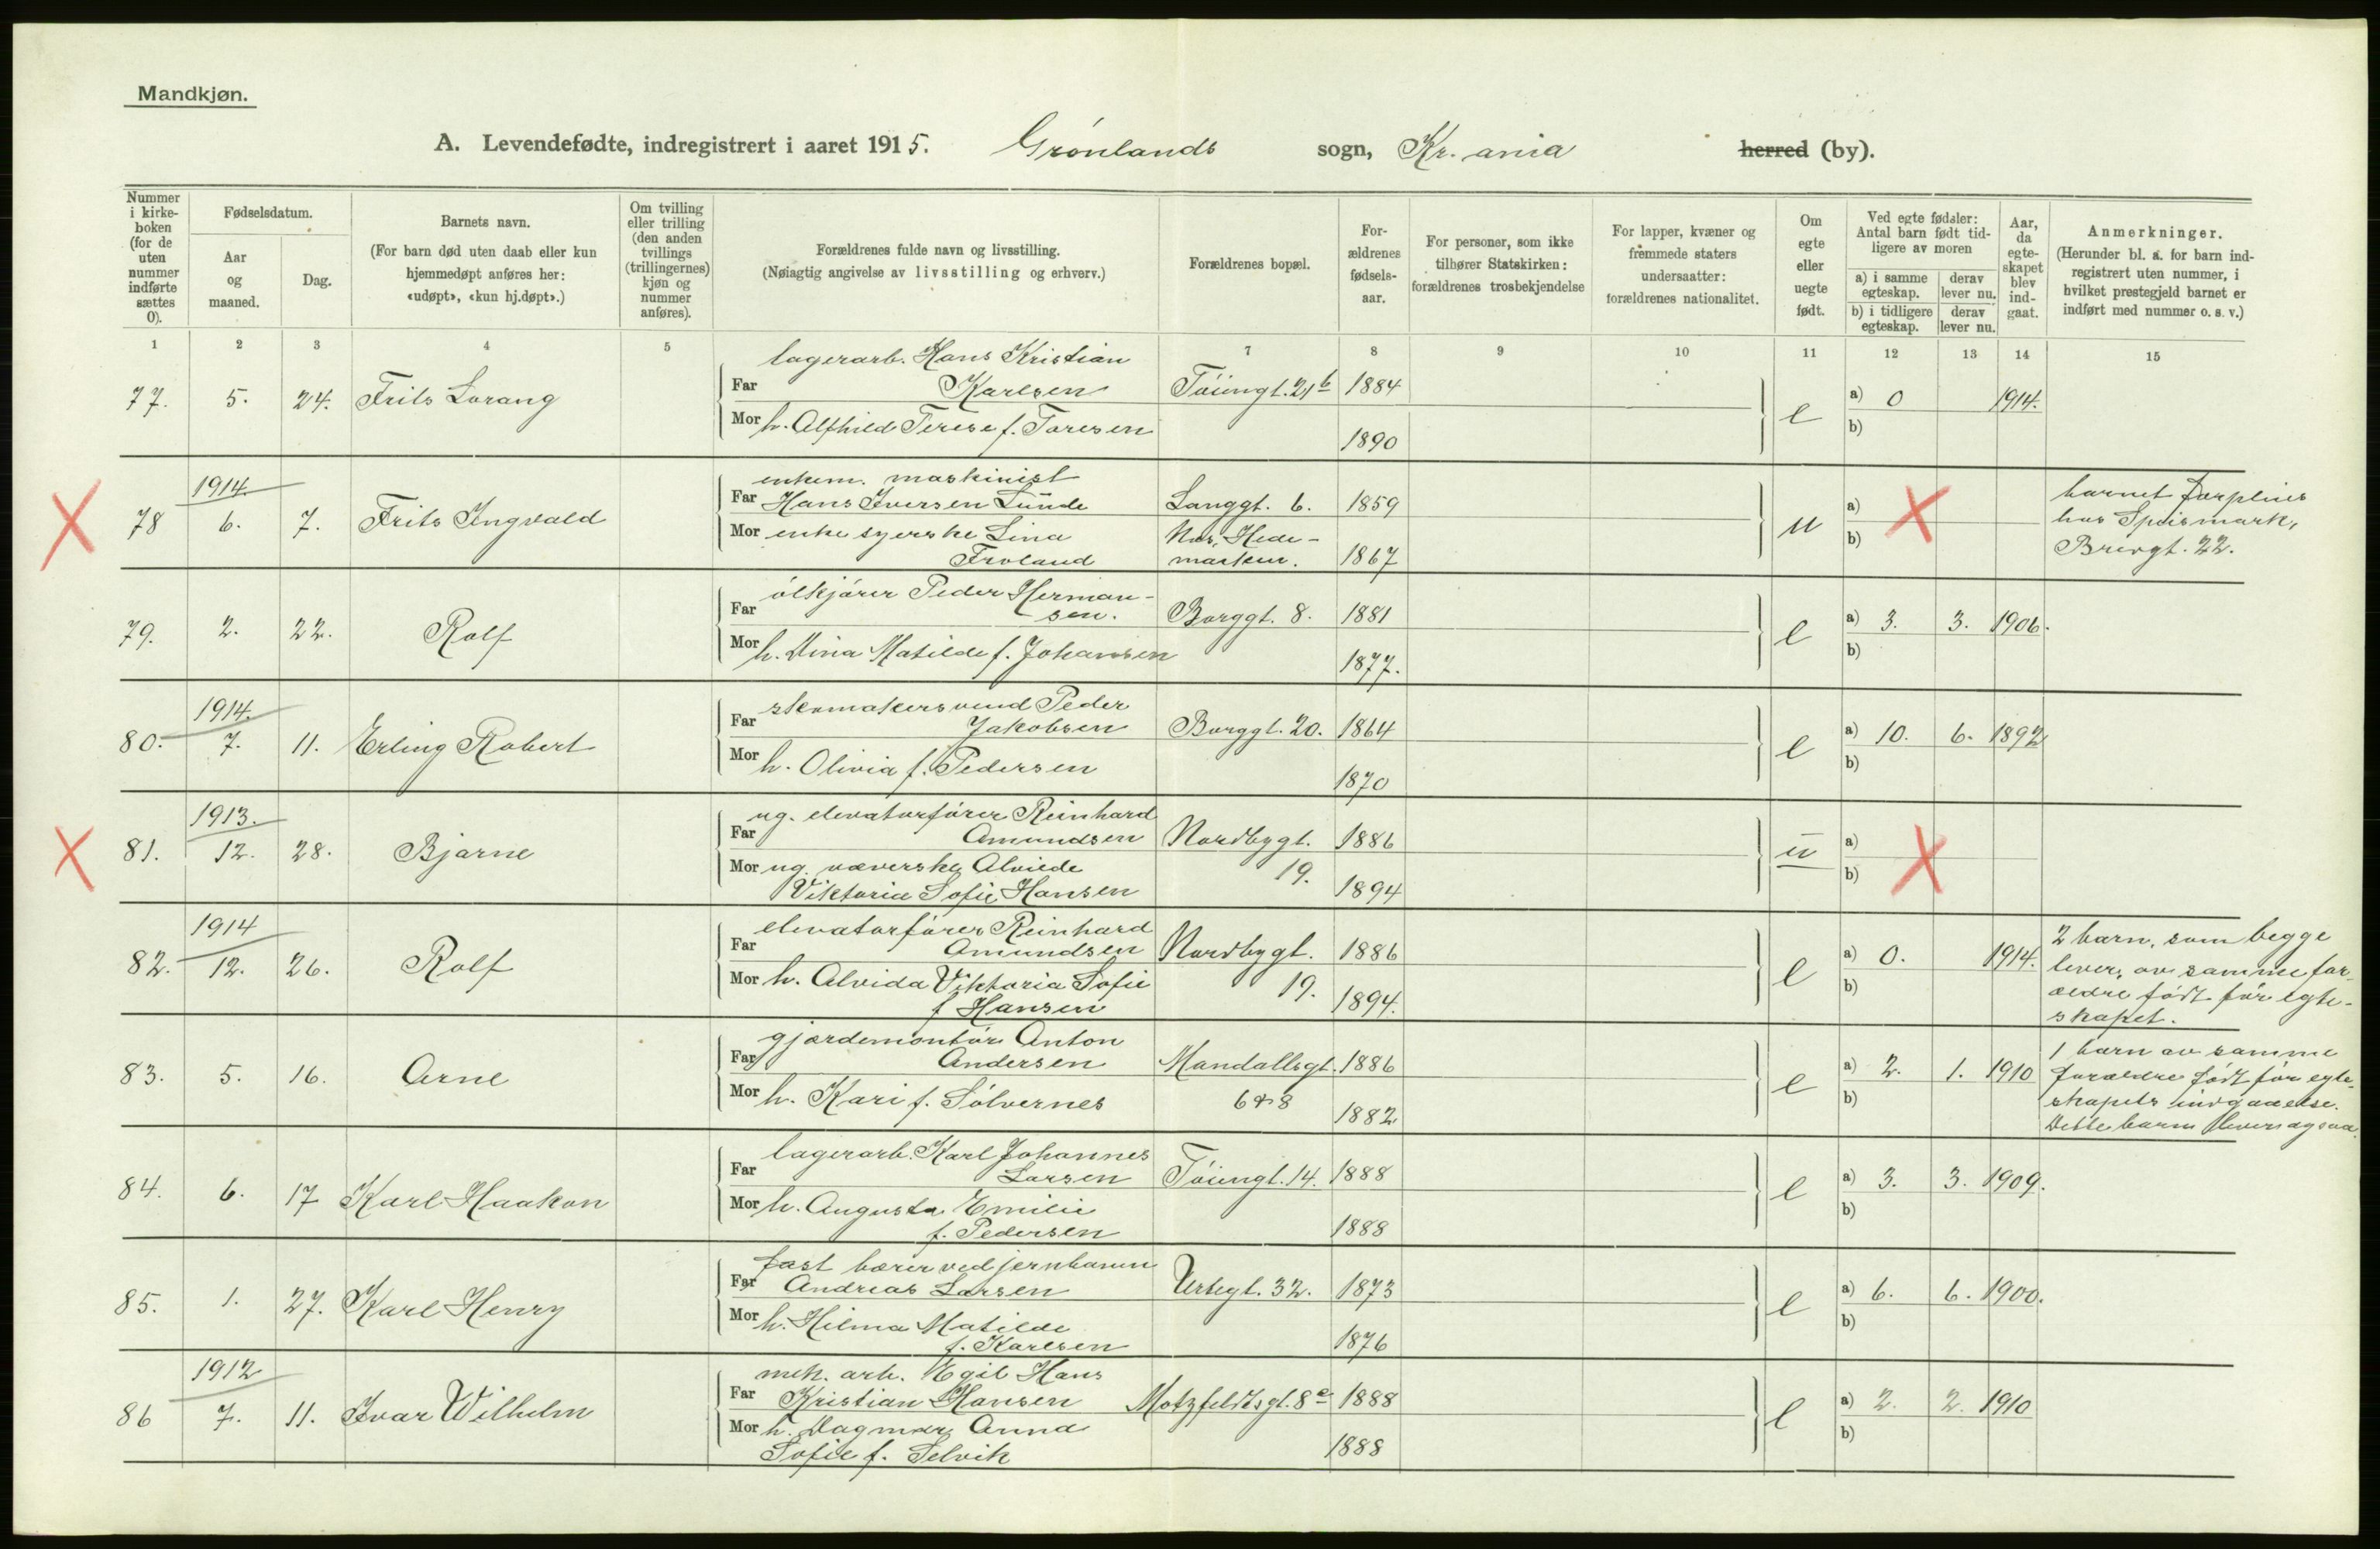 Mandkjøn.
A. Levendefødte, indregistrert i aaret 1915. Grønlands sogn, Kr.ania herred (by).
Nummer i kirke-boken (for de uten nummer indførte sættes 0).
Fødselsdatum.
Aar og maaned.
Dag.
Barnets navn.
(For barn død uten daab eller kun hjemmedøpt anføres her: «udøpt», «kun hj.døpt».)
Om tvilling eller trilling (den anden tvillings (trillingernes) kjøn og nummer anføres).
Forældrenes fulde navn og livsstilling.
(Nøiagtig angivelse av livsstilling og erhverv.)
Forældrenes bopæl.
For-ældrenes fødsels-aar.
For personer, som ikke tilhører Statskirken: forældrenes trosbekjendelse
For lapper, kvæner og fremmede staters undersaatter: forældrenes nationalitet.
Om egte eller uegte født.
Ved egte fødsler: Antal barn født tid-ligere av moren
a) i samme egteskap. derav lever nu.
b) i tidligere egteskap. derav lever nu.
Aar, da egte-skapet blev ind-gaat.
Anmerkninger.
(Herunder bl. a. for barn ind-registrert uten nummer, i hvilket prestegjeld barnet er indført med nummer o. s. v.)
1 2 3 4 5 7 8 9 10 11 12 13 14 15
lagerarb. Hans Kristian
77. 5. 24. Frits Lorang Far Karlsen Tøiengt. 21b 1884 e a) 0 1914.
Mor h. Alfhild Terese f. Toresen 1890 b)
1914. enkem. maskinist
78 6. 7. Frits Ingvald Far Hans Iversen Lunde Langgt. 6. 1859 u a) barnet
Mor enke syerske Lina Nes, Hede- b) hos Speismark,
Froland marken. 1867 Brevgt. 22.
ølkjører Peder Herman-
79. 2. 22. Rolf Far sen. Borggt. 8. 1881 e a) 3. 3. 1906.
Mor h. Dina Matilde f. Johansen 1877. b)
1914. skomakersvend Peder
80. 7. 11. Erling Robert Far Jakobsen Borggt. 20. 1864 e a) 10. 6. 1892
Mor h. Olivia f. Pedersen 1870 b)
1913. ug. elevatorfører Reinhard
81. 12. 28. Bjarne Far Amundsen Nordbygt. 1886 u a)
Mor ug. væverske Alvilde 19. b)
Viktoria Sofie Hansen 1894
1914 elevatorfører Reinhard 2 barn, som begge
82. 12. 26. Rolf Far Amundsen Nordbygt. 1886 e a) 0. 1914. lever, av samme for-
Mor h. Alvida Viktoria Sofie 19. b) ældre født før egte-
f Hansen 1894. skapet.
gjørdemontør Anton 1 barn av samme
83. 5. 16. Arne Far Andersen Mandallsgt. 1886 e a) 2. 1. 1910 forældre født før egte-
Mor h. Kari f. Sølvernes 6 & 8 1882 b) skapets indgaaelse.
Dette barn lever ogsaa.
lagerarb. Karl Johannes
84. 6. 17 Karl Haakon Far Larsen Tøiengt. 14. 1888 e a) 3. 3. 1909.
Mor h. Augusta Emilie b)
f. Pedersen 1888
fast bærer ved jernbanen
85. 1. 27. Karl Henry Far Andreas Larsen Urtegt. 32. 1873 e a) 6. 6. 1900.
Mor h. Hilma Matilde b)
f. Karlsen 1876
1912 mek. arb. Egil Hans
86 7. 11. Ivar Wilhelm Far Kristian Hansen Motzfeldtsgt. 8c 1888 e a) 2. 2. 1910
Mor h. Dagmar Anna b)
Sofie f. Selvik 1888